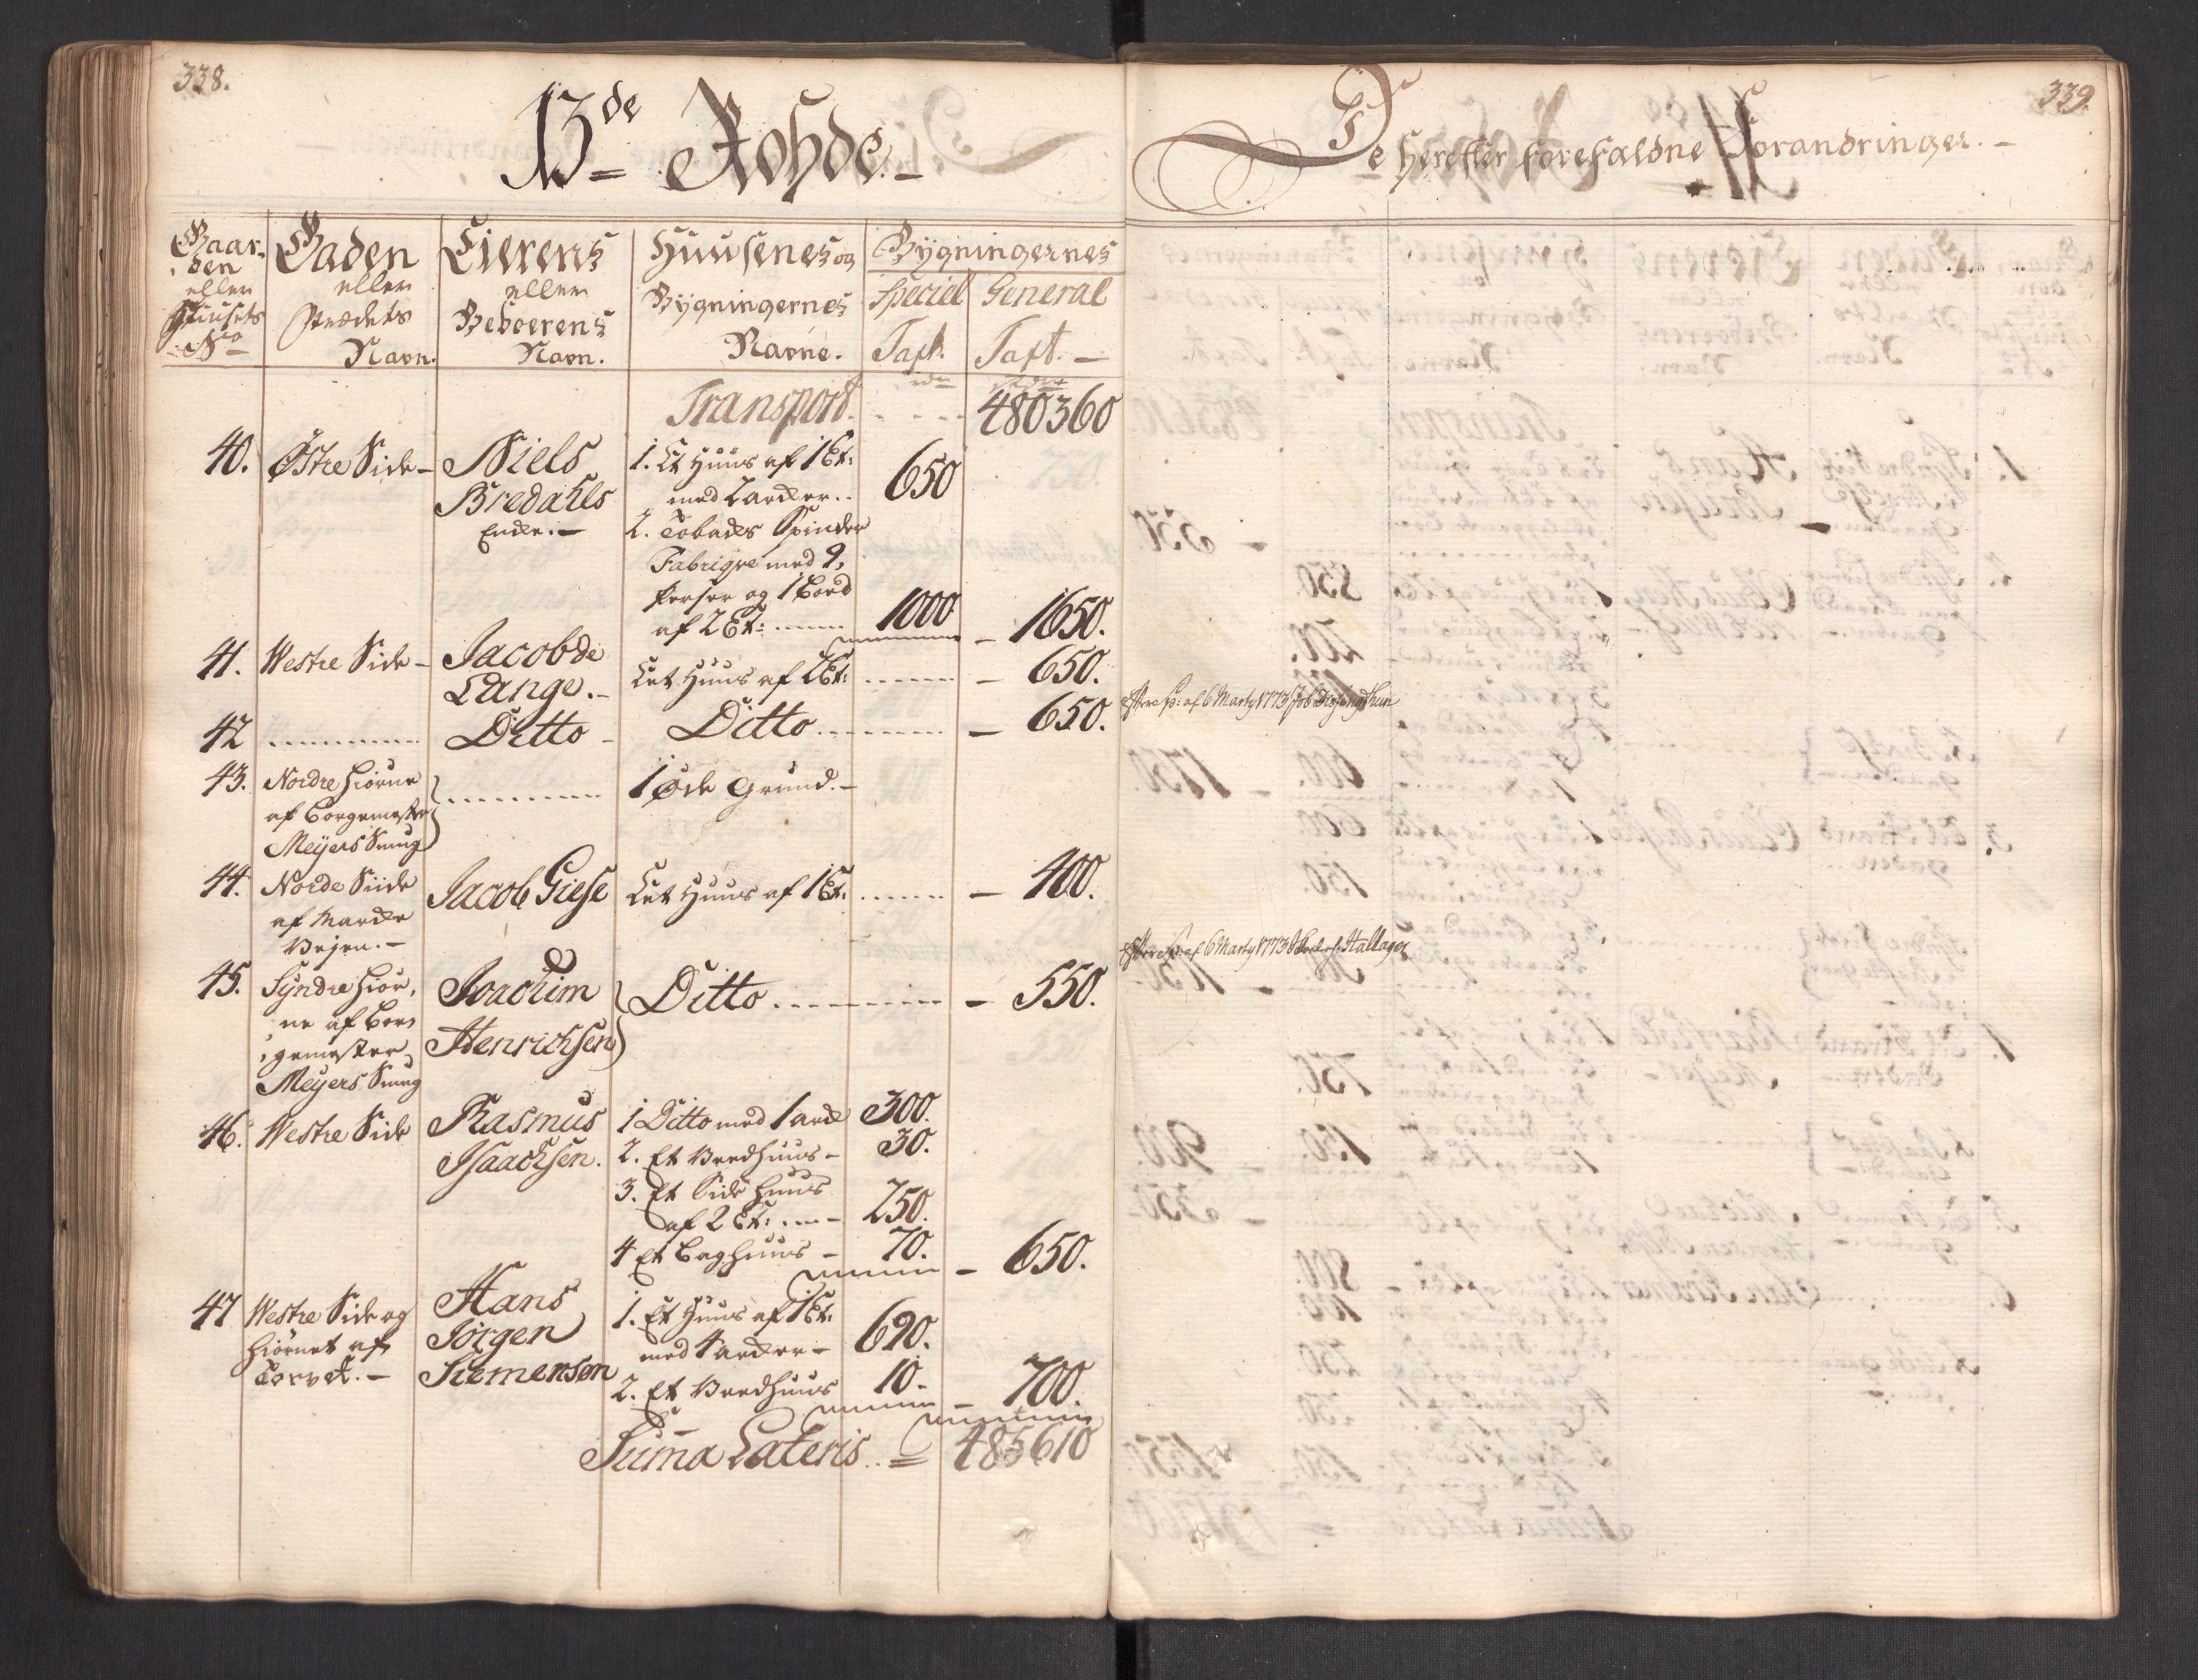 338.
13de Rohde.
Gaar-
den
eller
Huusets
No
Gaden
eller
Strædets
Navn.
Eierens
eller
Beboerens
Navn.
Huusenes og
Bygningernes
Navne.
Bygningernes
Speciel General
Taxt. Taxt.
rdr
Transport. 480360
40. Østre Side Niels 1. Et Huus af 1 Et:
Bredahls med 2 arcker.. 650
Encke. 2. Tobacks Spinder
Fabriqve med 9,
Perser og 1 Bord
af 2 Et: 1000 1650.
41. Westre Side Jacob de
Lange. Eet Huus af 2 Et: 650.
42 Ditto Ditto 650.
43. Nordre Hiørne 1 øde Grund.
af Borgemester
Meyers Smug
44. Norde Siide Jacob Giese Eet Huus af 1 Et: 400.
af Marcke
Vejen.
45. Syndre Hiør, Joachim Ditto 550.
ne af Bor,
gemester Henrichsen
Meyers Smug
46. Westre Side Rasmus 1 Ditto med 1 arck 300.
Isaachsen. 2. Et Vredhuus 30.
3. Et Side Huus
af 2 Et: 250.
4 Et Baghuus 70. 650.
47 Westre Side og Hans 1. Et Huus af 1 Et:
Hiørnet af Jørgen med 4 arcker 690.
Torvet. Siemensøn 2. Et Vredhuus 10. 700.
Suma Lateris 485610
339.
De herefter forefaldne Forandringer.
Efter af 6 Marty 1773
Efter af 6 Marty 1773 Hallager